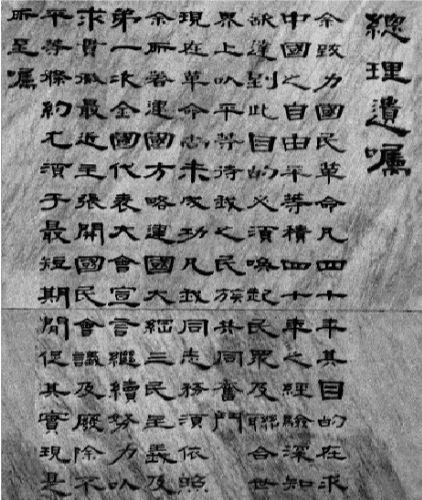 總理遺囑
余致力國民革命凡四十年其目的在求
中國之自由平等積四十年之經驗深知
欲達到此目的必須喚起民眾及聯合世
界上以平等待我之民族共同奮鬥
現在革命尚未成功凡我同志務須依照
余所著建國方略建國大綱三民主義及
第一次全國代表大會宣言繼續努力以
求貫徹最近主張開國民會議及廢除不
平等條約尤須于最短期間促其實現是
所至囑